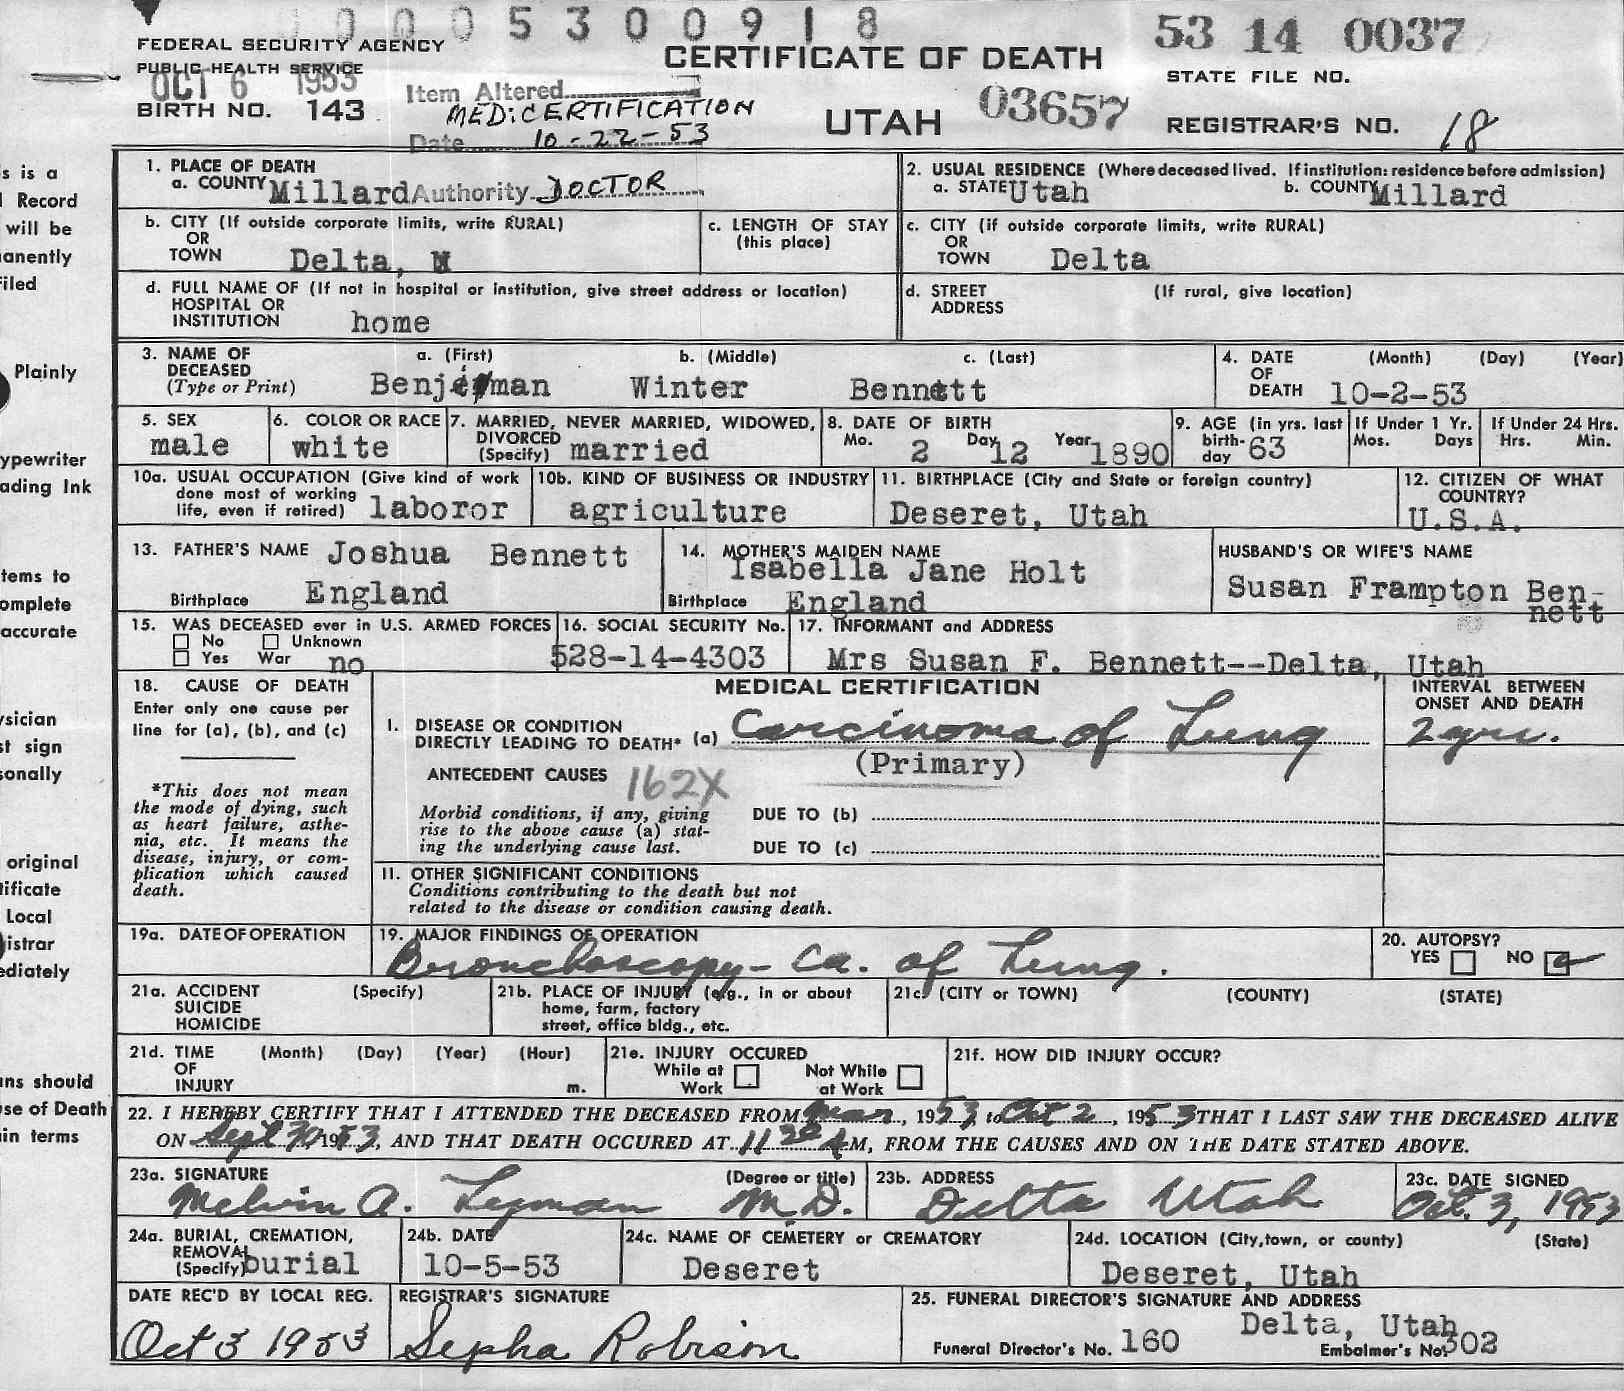 0 0 0 5 3 0 0 9 1 8
53 14 0037
FEDERAL SECURITY AGENCY
PUBLIC HEALTH SERVICE
OCT 6 1953
BIRTH NO. 143
Item Altered
MEDICERTIFICATION
Date 10-22-53
CERTIFICATE OF DEATH
UTAH 03657
STATE FILE NO.
REGISTRAR'S NO. 18
1. PLACE OF DEATH
a. COUNTY Millard Authority DOCTOR
2. USUAL RESIDENCE (Where deceased lived. If institution: residence before admission)
a. STATE Utah b. COUNTY Millard
b. CITY (If outside corporate limits, write RURAL)
OR
TOWN Delta,
c. LENGTH OF STAY
(this place)
c. CITY (if outside corporate limits, write RURAL)
OR
TOWN Delta
d. FULL NAME OF (If not in hospital or institution, give street address or location)
HOSPITAL OR
INSTITUTION home
d. STREET (If rural, give location)
ADDRESS
3. NAME OF a. (First) b. (Middle) c. (Last)
DECEASED
(Type or Print) Benjeman Winter Bennett
4. DATE (Month) (Day) (Year)
OF
DEATH 10-2-53
5. SEX
male
6. COLOR OR RACE
white
7. MARRIED, NEVER MARRIED, WIDOWED,
DIVORCED
(Specify) married
8. DATE OF BIRTH
Mo. 2 Day 12 Year 1890
9. AGE (in yrs. last
birth-
day 63
If Under 1 Yr.
Mos. Days
If Under 24 Hrs.
Hrs. Min.
10a. USUAL OCCUPATION (Give kind of work
done most of working
life, even if retired) laboror
10b. KIND OF BUSINESS OR INDUSTRY
agriculture
11. BIRTHPLACE (City and State or foreign country)
Deseret, Utah
12. CITIZEN OF WHAT
COUNTRY?
U.S.A.
13. FATHER'S NAME Joshua Bennett
Birthplace England
14. MOTHER'S MAIDEN NAME
Isabella Jane Holt
Birthplace England
HUSBAND'S OR WIFE'S NAME
Susan Frampton Ben-
nett
15. WAS DECEASED ever in U.S. ARMED FORCES
No Unknown
Yes War no
16. SOCIAL SECURITY No.
528-14-4303
17. INFORMANT and ADDRESS
Mrs Susan F. Bennett--Delta, Utah
18. CAUSE OF DEATH
Enter only one cause per
line for (a), (b), and (c)
*This does not mean
the mode of dying, such
as heart failure, asthe-
nia, etc. It means the
disease, injury, or com-
plication which caused
death.
MEDICAL CERTIFICATION
I. DISEASE OR CONDITION
DIRECTLY LEADING TO DEATH* (a) Carcinoma of Lung
(Primary)
ANTECEDENT CAUSES 162X
Morbid conditions, if any, giving
rise to the above cause (a) stat-
ing the underlying cause last.
DUE TO (b)
DUE TO (c)
INTERVAL BETWEEN
ONSET AND DEATH
2 yrs.
11. OTHER SIGNIFICANT CONDITIONS
Conditions contributing to the death but not
related to the disease or condition causing death.
19a. DATE OF OPERATION
19. MAJOR FINDINGS OF OPERATION
Bronchoscopy - Ca. of Lung.
20. AUTOPSY?
YES NO
21a. ACCIDENT (Specify)
SUICIDE
HOMICIDE
21b. PLACE OF INJURY (e.g., in or about
home, farm, factory
street, office bldg., etc.
21c. (CITY or TOWN) (COUNTY) (STATE)
21d. TIME (Month) (Day) (Year) (Hour)
OF
INJURY m.
21e. INJURY OCCURED
While at Not While
Work at Work
21f. HOW DID INJURY OCCUR?
22. I HEREBY CERTIFY THAT I ATTENDED THE DECEASED FROM Mar, 1953, to Oct 2, 1953 THAT I LAST SAW THE DECEASED ALIVE
ON Sept 30, 1953, AND THAT DEATH OCCURED AT 11 20 AM, FROM THE CAUSES AND ON THE DATE STATED ABOVE.
23a. SIGNATURE (Degree or title)
Melvin A. Lyman M.D.
23b. ADDRESS
Delta Utah
23c. DATE SIGNED
Oct. 3, 1953
24a. BURIAL, CREMATION,
REMOVAL
(Specify) burial
24b. DATE
10-5-53
24c. NAME OF CEMETERY or CREMATORY
Deseret
24d. LOCATION (City, town, or county) (State)
Deseret, Utah
DATE REC'D BY LOCAL REG.
Oct 3 1953
REGISTRAR'S SIGNATURE
Sepha Robison
25. FUNERAL DIRECTOR'S SIGNATURE AND ADDRESS
Delta, Utah
Funeral Director's No. 160 Embalmer's No. 302
s is a
Record
will be
anently
iled
Plainly
ypewriter
ading Ink
tems to
omplete
accurate
ysician
st sign
sonally
original
tificate
Local
istrar
ediately
ans should
se of Death
in terms